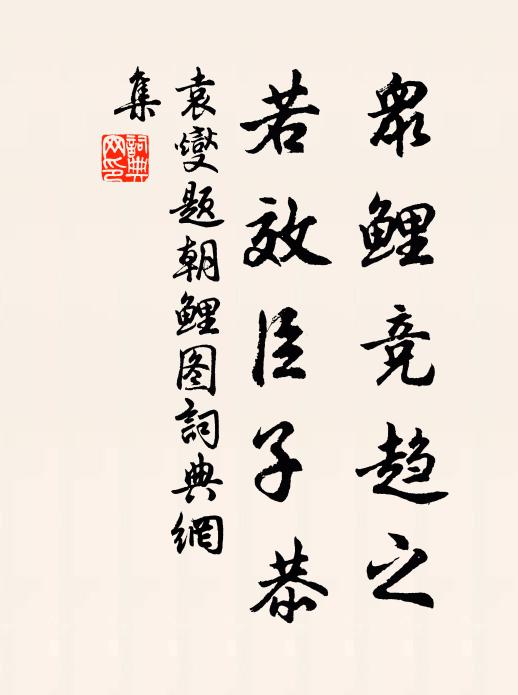 眾鯉竞趋之
若效臣子恭
袁燮题朝鯉图詞典網
集
詞典
网印